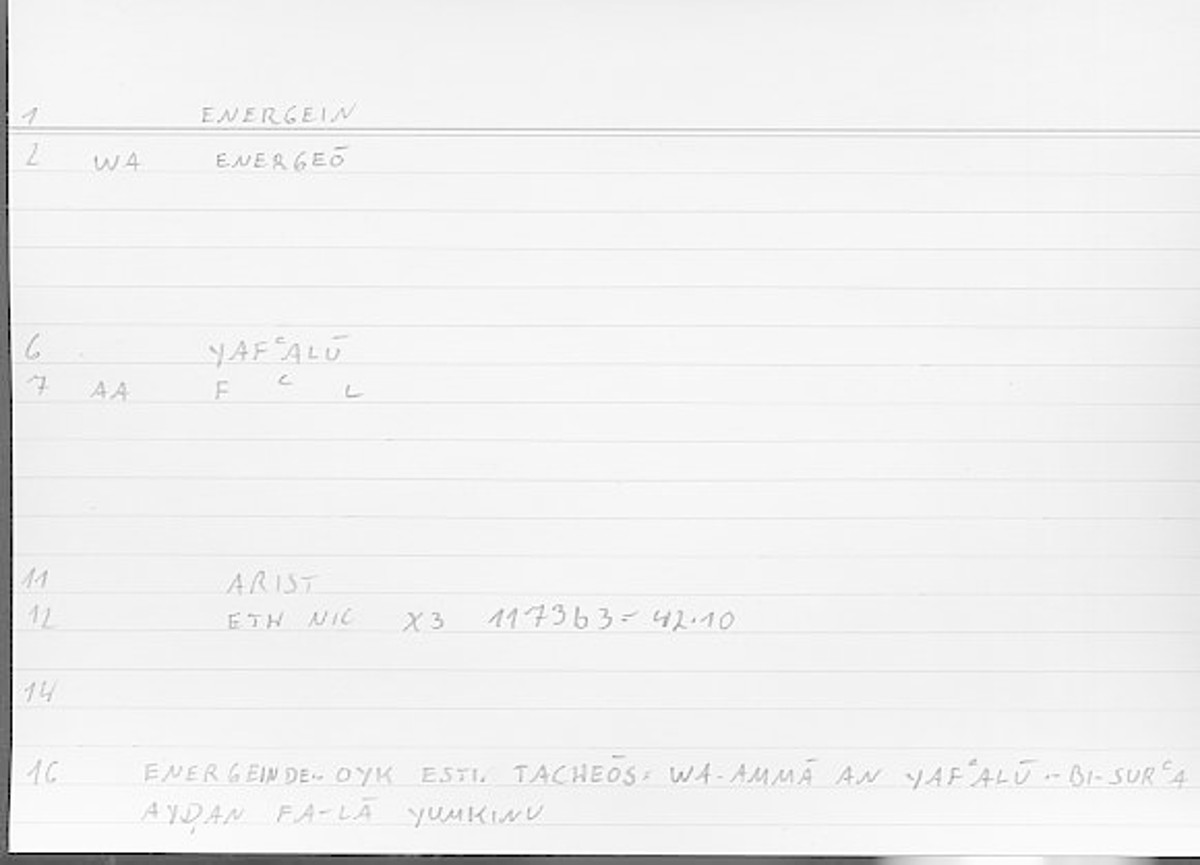 1 ENERGEIN
2 WA ENERGEŌ
6 YAFʿALŪ
7 AA F ʿ L
11 ARIST
12 ETH NIC X3 1173b3 = 42.10
14
16 ENERGEIN DE.. OYK ESTI. TACHEŌS: WA-AMMĀ AN YAFʿALŪ .. BI-SURʿA
AYḌAN FA-LĀ YUMKINU